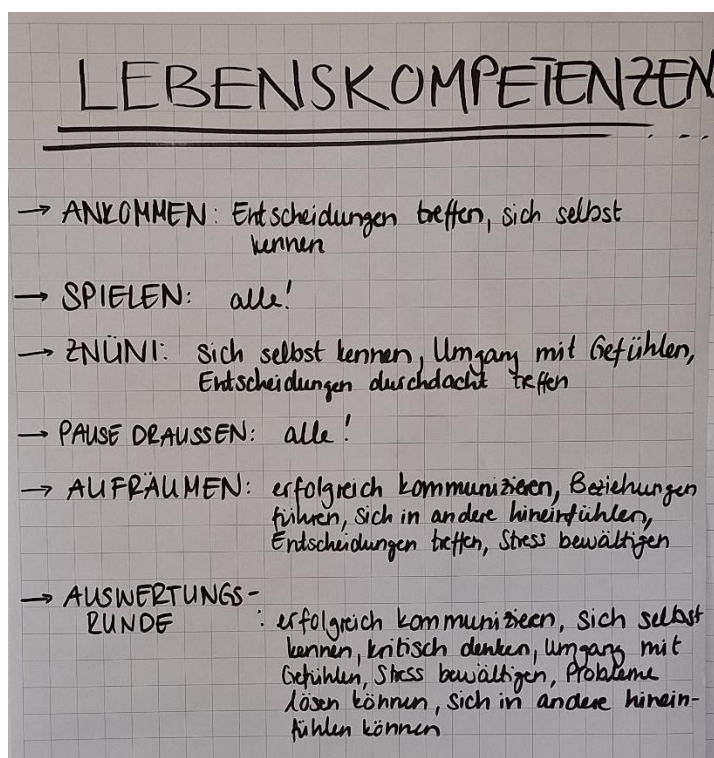 LEBENSKOMPETENZEN
→ ANKOMMEN: Entscheidungen treffen, sich selbst
kennen
→ SPIELEN: alle!
→ ZNÜNI: Sich selbst kennen, Umgang mit Gefühlen,
Entscheidungen durchdacht treffen
→ PAUSE DRAUSSEN: alle!
→ AUFRÄUMEN: erfolgreich kommunizieren, Beziehungen
führen, Sich in andere hineinfühlen,
Entscheidungen treffen, Stress bewältigen
→ AUSWERTUNGS-
RUNDE : erfolgreich kommunizieren, Sich selbst
kennen, kritisch denken, Umgang mit
Gefühlen, Stress bewältigen, Probleme
lösen können, Sich in andere hinein-
fühlen können